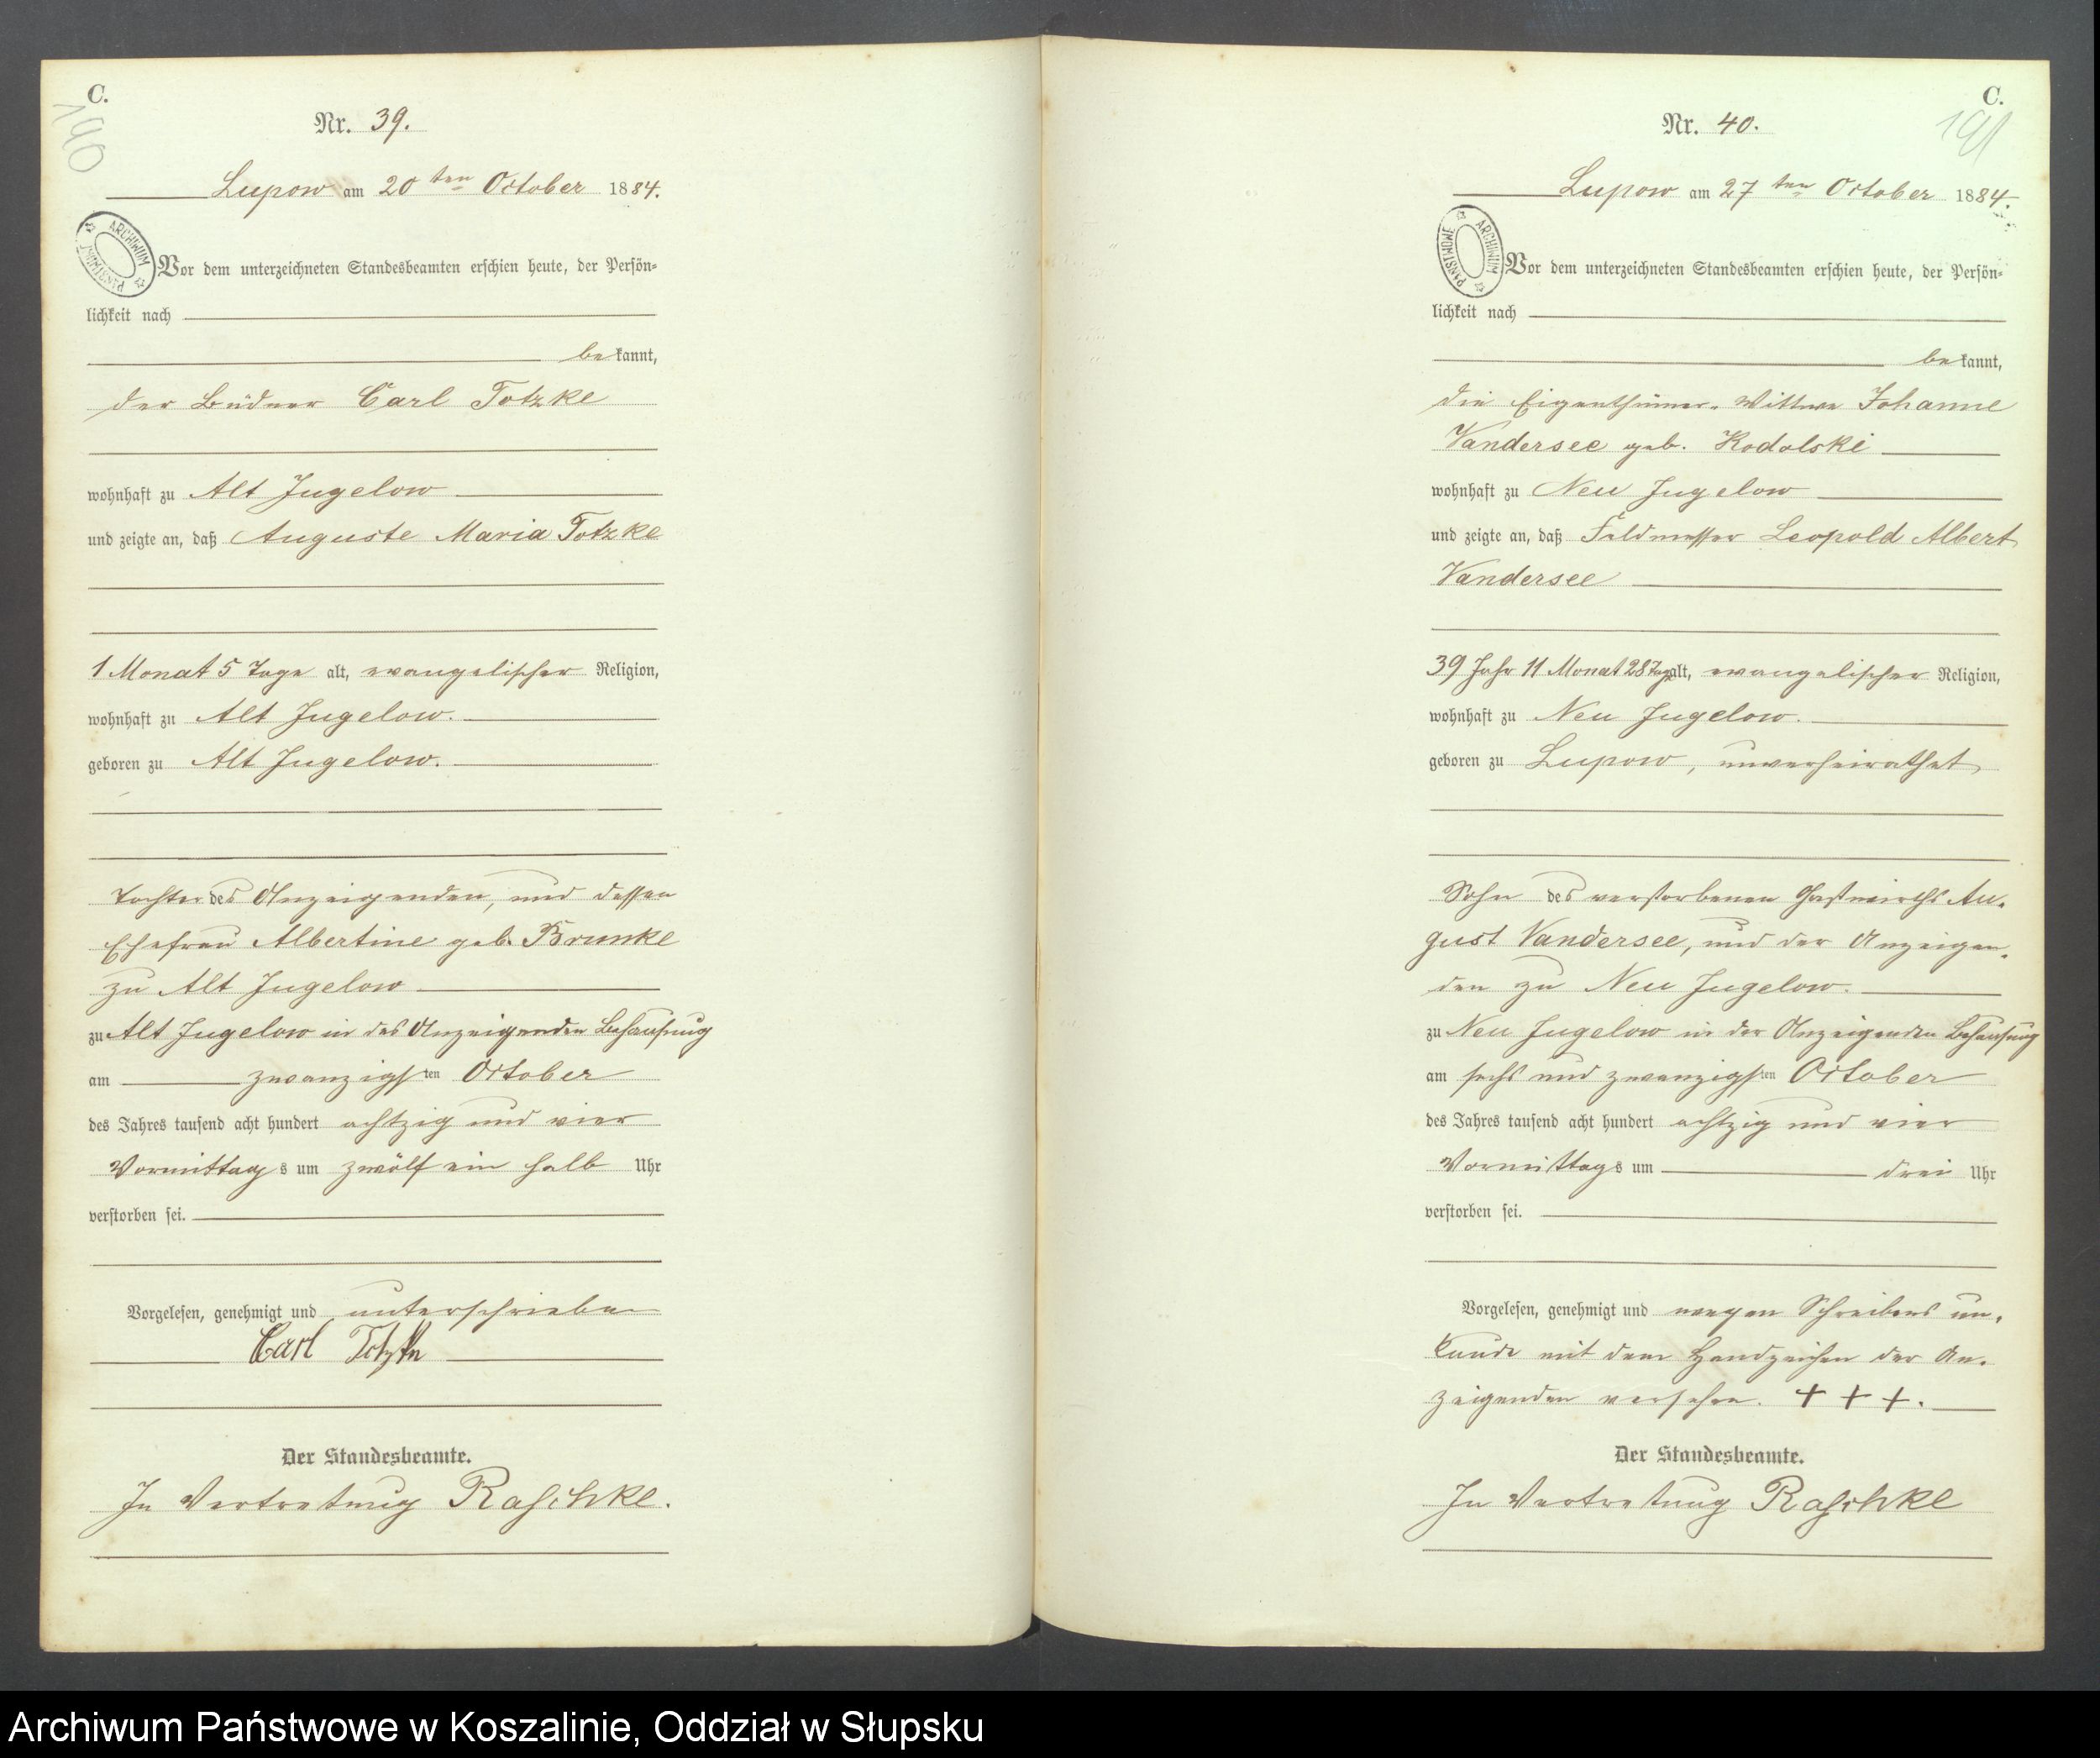 C.
190
Nr. 39.
Lupow am 20ten October 1884.
ARCHIWUM PAŃSTWOWE
Vor dem unterzeichneten Standesbeamten erschien heute, der Persön-
lichkeit nach
bekannt,
der Büdner Carl Totzke
wohnhaft zu Alt Jugelow
und zeigte an, daß Auguste Maria Totzke
1 Monat 5 Tage alt, evangelischer Religion,
wohnhaft zu Alt Jugelow.
geboren zu Alt Jugelow.
Tochter des Anzeigenden, und dessen
Ehefrau Albertine geb. Brunke
zu Alt Jugelow
zu Alt Jugelow in des Anzeigenden Behausung
am zwanzigsten October
des Jahres tausend acht hundert achtzig und vier
Vormittags um zwölf ein halb Uhr
verstorben sei.
Vorgelesen, genehmigt und unterschrieben
Carl Totzke
Der Standesbeamte.
In Vertretung Raschke.
C.
191
Nr. 40.
Lupow am 27ten October 1884.
ARCHIWUM PAŃSTWOWE
Vor dem unterzeichneten Standesbeamten erschien heute, der Persön-
lichkeit nach
bekannt,
die Eigenthümer-Wittwe Johanne
Vandersee geb. Kodolski
wohnhaft zu Neu Jugelow
und zeigte an, daß Feldmesser Leopold Albert
Vandersee
39 Jahr 11 Monat 28 Tage alt, evangelischer Religion,
wohnhaft zu Neu Jugelow.
geboren zu Lupow, unverheirathet
Sohn des verstorbenen Gastwirths Au-
gust Vandersee, und der Anzeigen-
den zu Neu Jugelow.
zu Neu Jugelow in der Anzeigenden Behausung
am sechs und zwanzigsten October
des Jahres tausend acht hundert achtzig und vier
Vormittags um drei Uhr
verstorben sei.
Vorgelesen, genehmigt und wegen Schreibens un-
kunde mit dem Handzeichen der An-
zeigenden versehen. + + +.
Der Standesbeamte.
In Vertretung Raschke
Archiwum Państwowe w Koszalinie, Oddział w Słupsku